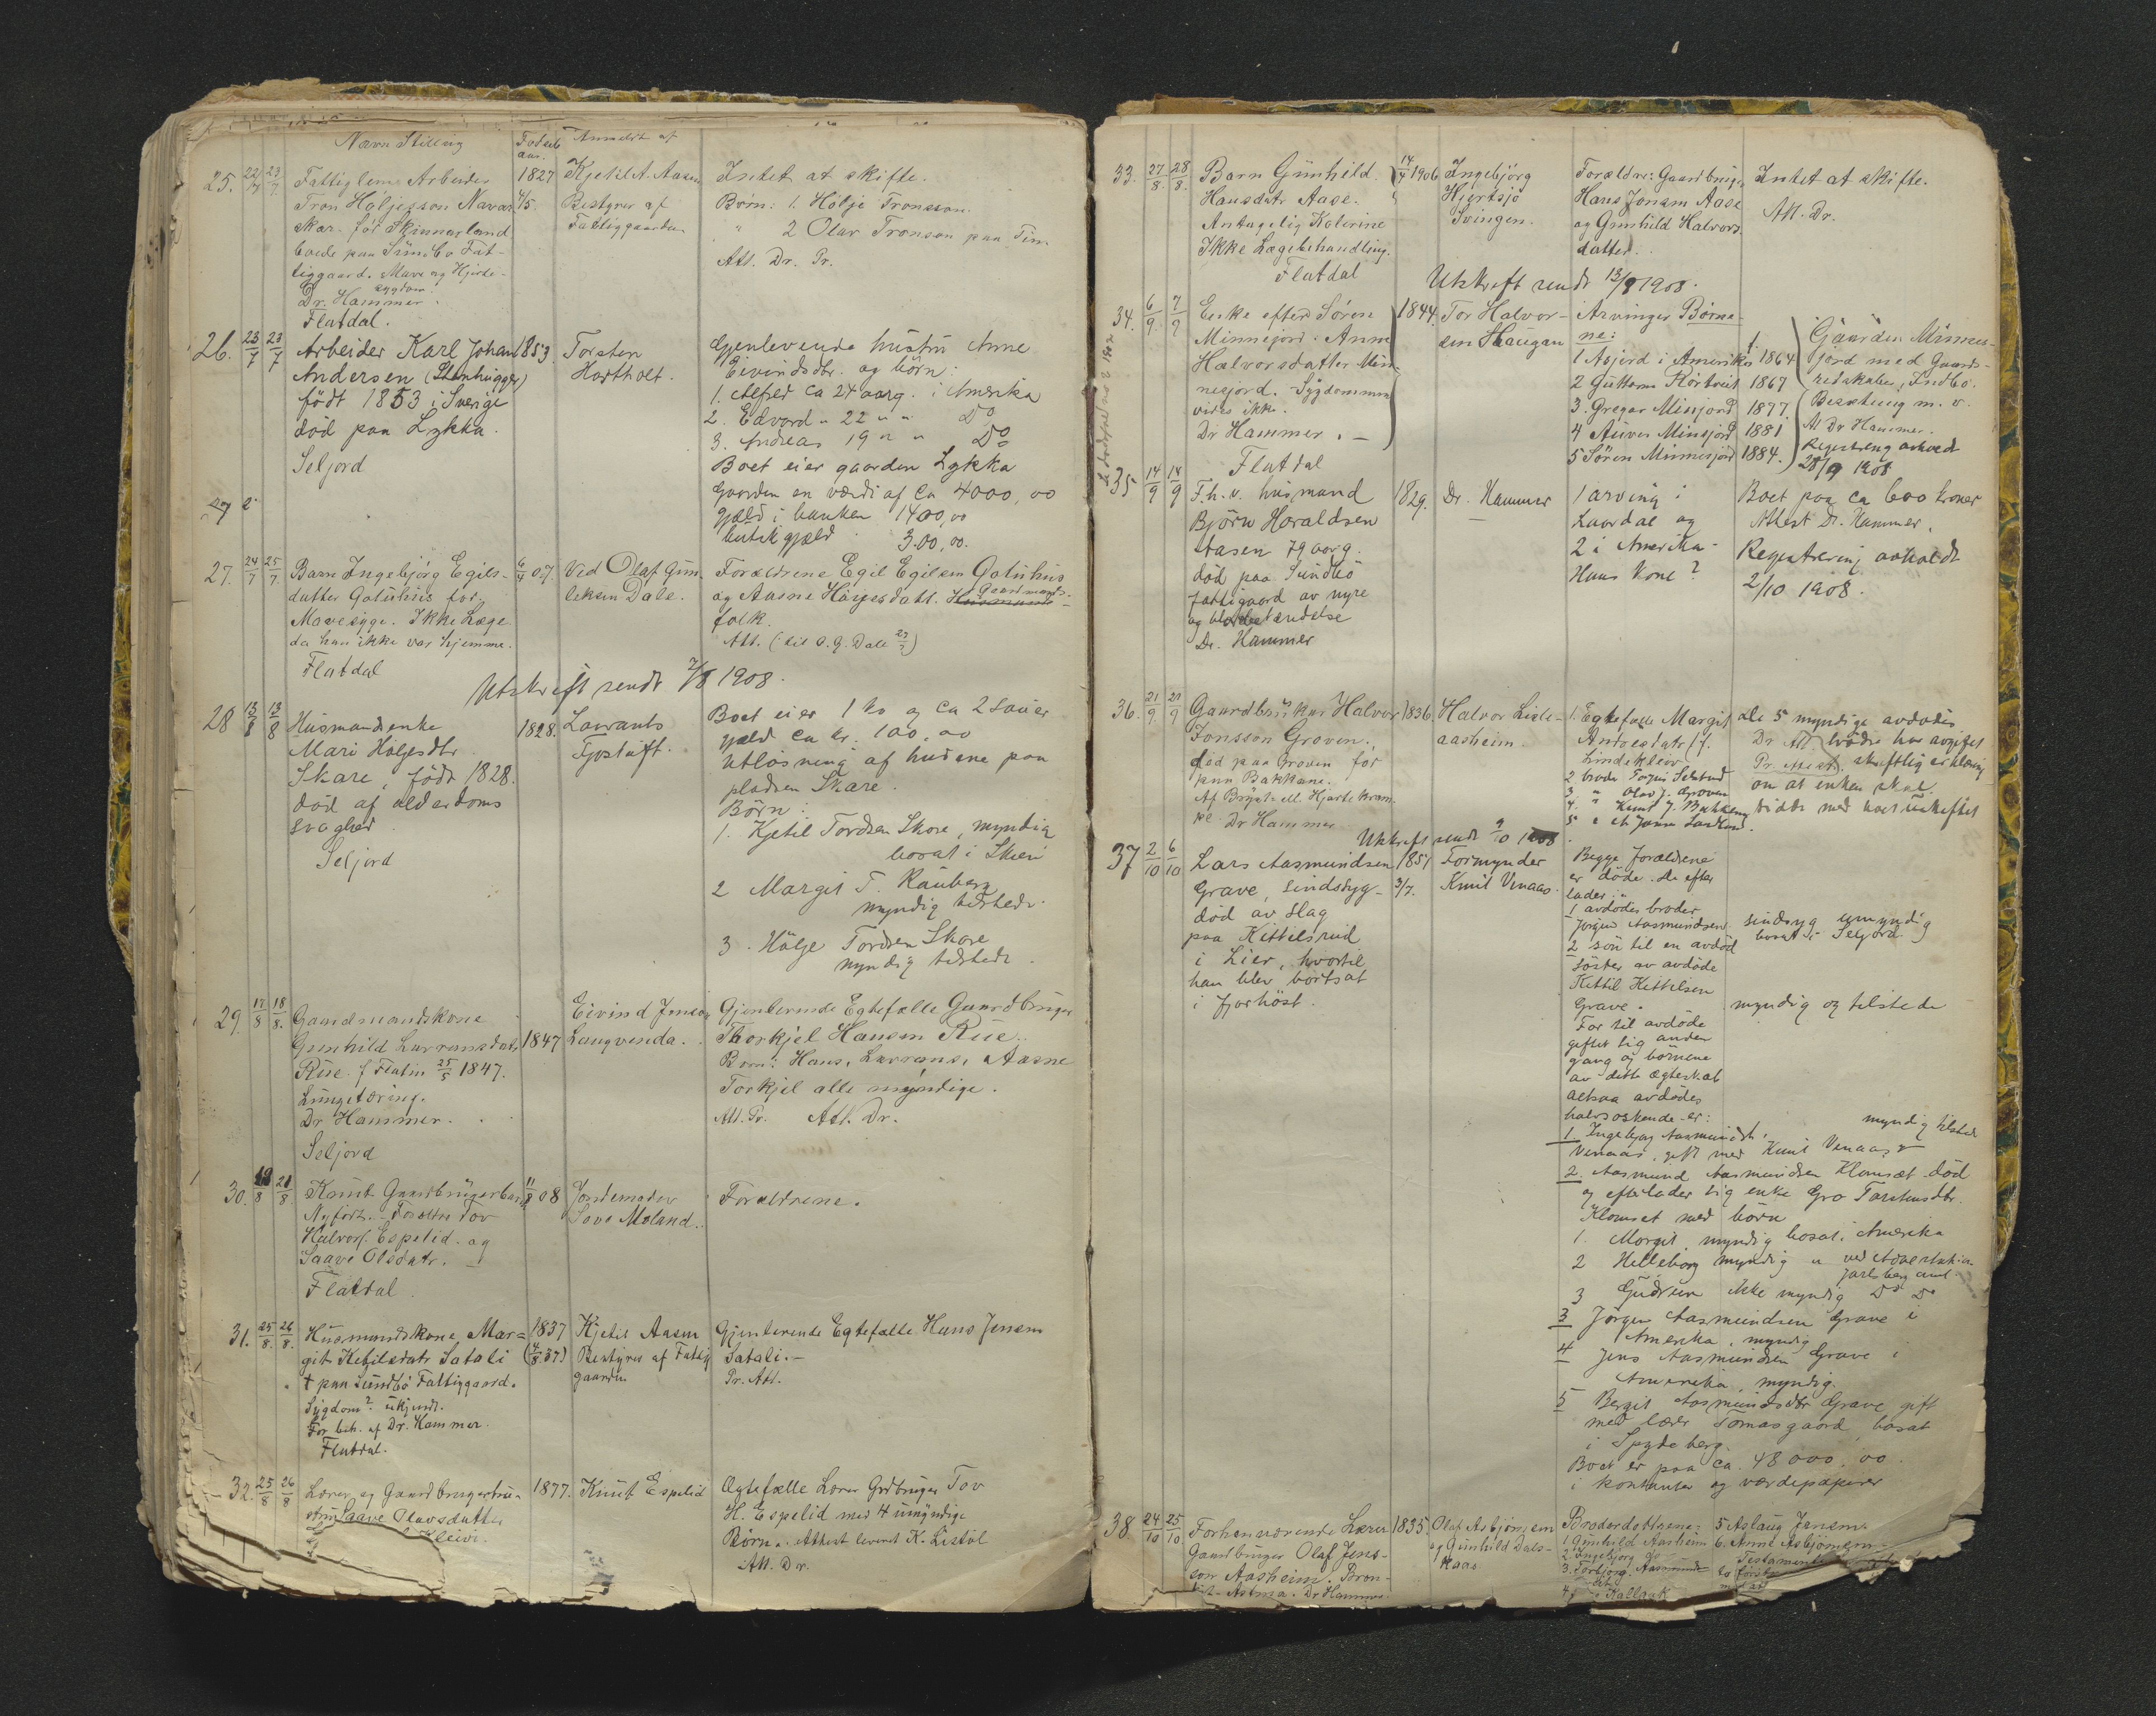 Navn Stilling
Fødsels
aar.
Anmeldt af
25. 22/7 23/7 Fattiglem Arbeider 1827 Kjetil A. Aasen Intet at skifte.
Tron Holjesson Navar 4/5. Bestyrer af Børn: 1. Holje Tronsson.
skar. før Skinnarland Fattiggaarden " 2 Olav Tronson paa Tin
boede paa Sundbø Fat- Att. Dr. Pr.
tiggaard. Mave og Hjerte-
sygdom.
Dr. Hammer.
Flatdal.
26. 23/7 23/7 Arbeider Karl Johan 1853 Torsten Gjenlevende hustru Anne
Andersen (Stenhugger) Hartholt. Eivindsdtr. og børn:
født 1853 i Sverige 1. Alfred ca 24 aarg. i Amerika
død paa Lykka. 2. Edvard " 22 " " Do
3. Andreas 19 " " Do
Seljord Boet eier gaarden Lykka
Gaarden en værdi af ca 4000,00
gjæld i banken 1400,00
butik gjæld 300,00.
27. 24/7 25/7. Barn Ingebjørg Egils- 6/4 07. Ved Olaf Gun- Forældrene Egil Egilsen Gotuhus
datter Gotuhus for. leksen Dale. og Aasne Høljesdatt. Husmands- Gaardmands-
Mavesyge. Ikke Læge folk.
da han ikke var hjemme. Att. (til O. G. Dale 27/7)
Flatdal
Utskrift sendt 7/8 1908.
28 13/8 13/8 Husmandsenke 1828. Lavrants Boet eier 1 ko og ca 2 sauer
Mari Holjesdtr Gjostuft. gjæld ca kr. 100,00
Skare, født 1828. Utløsning af husene paa
død af alderdoms pladsen Skare.
svaghed. Børn:
Seljord 1. Kjetil Tordsen Skare, myndig
bosat i Skien
2 Margit T. Rauberg
myndig tilstede.
3. Hølje Tordsen Skare
myndig tilstede.
29. 17/8 18/8. Gaardmandskone Eivind Jenson Gjenlevende Egtefælle Gaardbruger
Gunhild Lavransdatr 1847 Langvenda. Thorkjel Hansen Rue.
Rue f Flatin 25/5 1847. Børn: Hans, Lavrans, Aasne
Lungetæring. Torkjel alle myndige.
Dr Hammer. Att. Pr. Att. Dr.
Seljord
30. 18/8 21/8 Knut Gaardbrugerbarn 11/8 08 Jordemoder Forældrene.
Nyfødt. Forældre Tov Sove Moland.
Halvors. Espelid. og
Saave Olsdatr.
Flatdal
31. 25/8. 26/8. Husmandskone Mar- 1837 Kjetil Aasen Gjenlevende Egtefælle Hans Jensen
git Ketilsdatr Satali (4/8 37) Bestyrer af Fattig Satali.-
† paa Sundbø Fattiggaard. gaarden Pr. Att.
Sygdom? ukjendt.
For beh. af Dr. Hammer.
Flatdal.
32. 25/8 26/8 Lærer og Gaardbrugerhu- 1877. Knut Espelid Ægtefælle Lærer Grdbruger Tov
stru Saave Olavsdatter H. Espelid med 4 umyndige
Kleivi. Børn. Attest leveret K. Listøl
Att. Dr.
33. 27/8. 28/8. Barn Gunhild 14/4 1906 Ingebjörg Forældre: Gaardbruger Intet at skifte.
Hansdatr Aase. Hjertsjø Hans Jonsen Aase Att. Dr.
Antagelig Kolerine Svingen. og Gunhild Halvors-
Ikke Lægebehandling. datter.
Flatdal
Utskrift sendt 13/9 1908.
34. 6/9. 7/9 Enke efter Søren 1844. Tor Halvor- Arvinger Børne-
Minnesjord. Anne sen Haugan ne: Gaarden Minnes-
Halvorsdatter Min- 1 Asjerd i Amerika 1864 jord med Gaards-
nesjord. Sygdommen 2 Guttorm Rørtveit 1867 redskaber, Indbo.
vides ikke. 3. Gregar Minsjord 1877. Besætning m. v.
Dr Hammer. - 4 Auver Minsjord 1881 At Dr Hammer.
5 Søren Minnesjord 1884. Registrering avhold
Flatdal 28/9 1908
35 14/9 14/9 F. h. v. husmand 1829. Dr. Hammer 1 arving i Boet paa ca 600 kroner
Bjørn Haraldsen Laurdal og Attest Dr. Hammer.
Aasen 79 aarg. 2 i Amerika. Registrering avholdt
død paa Sundbø Hans Kone? 2/10 1908.
fattigaard av nyre
og blærebetændelse
Dr. Hammer
36. 21/9. 21/9 Gaardbruker Halvor 1836. Halvor Lisle- 1. Egtefælle Margit De 5 myndige avdødes
Jonsson Groven. aasheim. Dr Att brødre har avgivet
død paa Groven før Lindekleiv Pr. Attest. skriftlig erklæring
paa Bakkane. 2 broder Torjus Selstad om at enken skal
Af Bryst- ell. Hjerte kram- 3. " Olav J. Groven sidde med boet uskiftet
pe. Dr Hammer 4. " Knut J. Bakken
Utskrift sendt 9/10 1908.
37 2/10 6/10 Lars Aasmundsen 1851 Formynder Begge forældrene
Grave, sindssyg- 3/7. Knut Venaas. er døde. De efter
død av slag lader:
paa Kittelsrud 1 avdødes broder
i Lier, hvortil Jørgen Aasmundsen sindssyg umyndig
han blev bortsat bosat i Seljord
i fjorhøst. 2 søn til en avdød
søster av avdøde
Kittil Kittilsen
Grave. myndig og tilstede
Far til avdøde
giftet sig anden
gang og børnene
av dette ægteskab
altsaa avdødes
halvsøskende er:
1 Ingeborg Aasmundsdtr. myndig tilstede
Venaas, gift med Knut Venaas
2 Aasmund Aasmundsen Klomset død
og efterlader sig enke Gro Torstensdtr.
Klomset med børn
1. Margit, myndig bosat i Amerika
2 Helleborg myndig
Jarlsberg amt
3 Gudrun ikke myndig Do Do
3 Jørgen Aasmundsen Grave i
Amerika, myndig
4 Jens Aasmundsen Grave i
Amerika, myndig.
5 Bergit Aasmundsdtr Grave gift
med lærer Tomasgaard, bosat
i Spydeberg.
Boet er paa ca. 48000,00
i kontanter og værdepapirer
38. 24/10 25/10. Forhenværende Lærer 1835. Olaf Asbjørnsen Broderdøttrene: 5 Aslaug Jensen
Gaardbruger Olaf Jens- og Gunhild Dals- 1 Gunhild Aasheim 6. Anne Asbjørnsen
son Aasheim. Bron- kaas 2. Ingebjørg do Testamente
kit. Astma. Dr Hammer. 3. Torbjørg Aasmunds